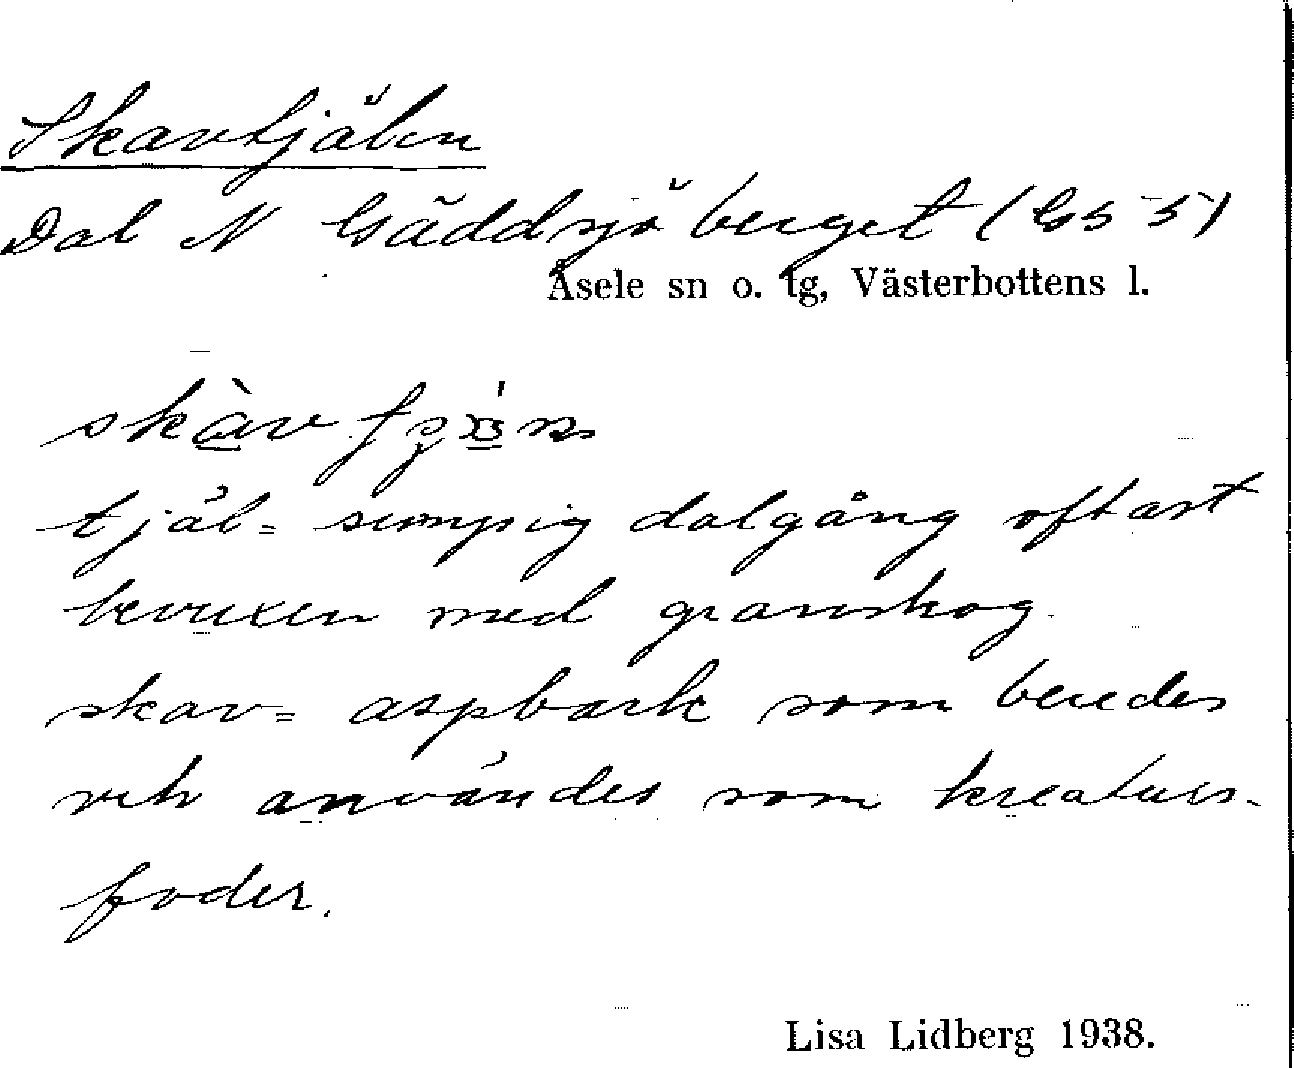 Skavtjälen
Dal N Gäddsjöberget (G5 5)
Åsele sn o. lg, Västerbottens l.
tjäl= sumpig dalgång oftast
bevuxen med granskog.
skav= aspbark som beredes
och användes som kreaturs-
foder.
Lisa Lidberg 1938.